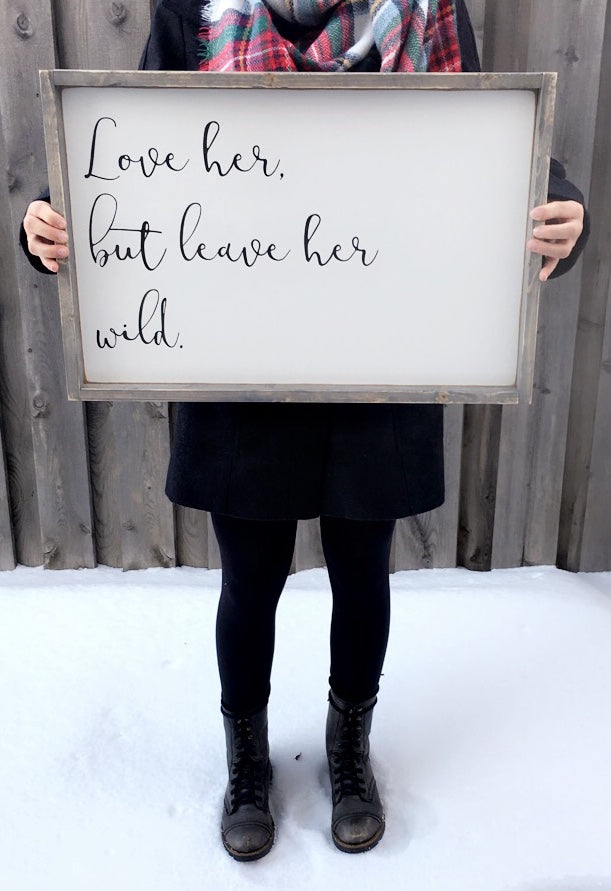 Love her,
but leave her
wild.